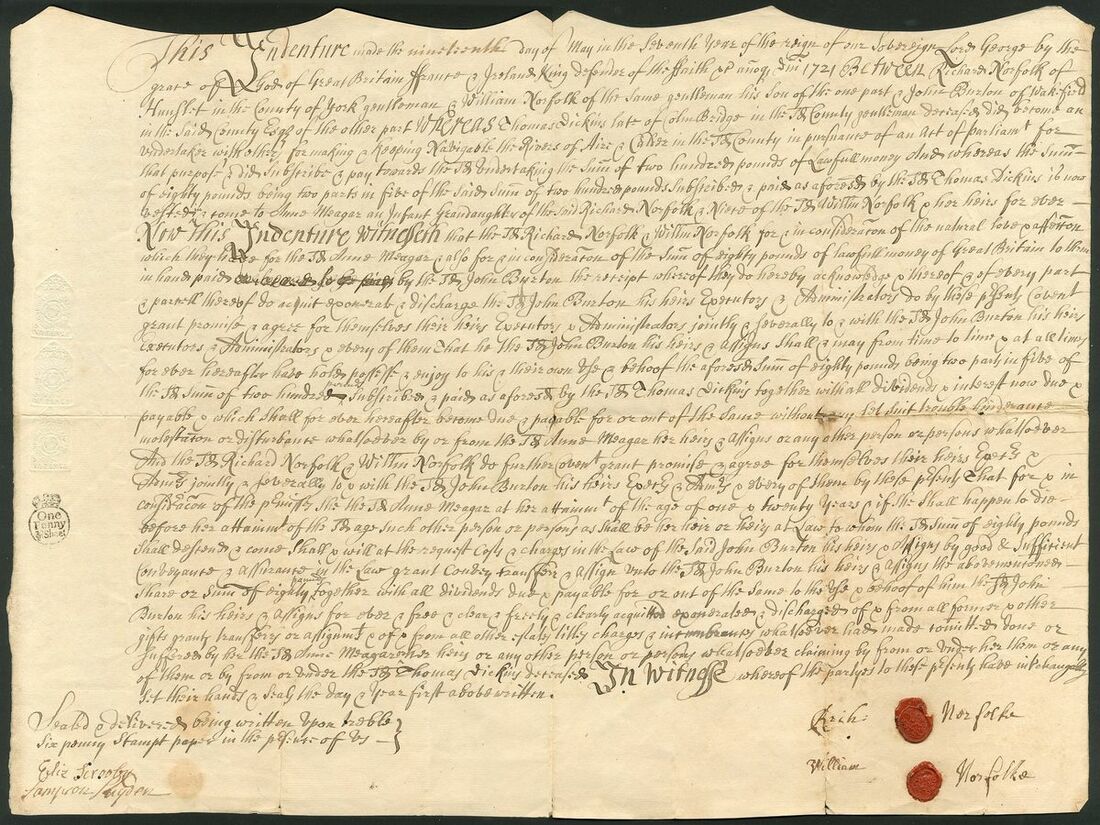 This Indenture made the nineteenth day of May in the Seventh Year of the reign of our Sovereign Lord George by the
grace of God of Great Britain ffrance & Ireland King defender of the ffaith & annoq Dni 1721 Between Richard Norfolk of
Hunslet in the County of York gentleman & William Norfolk of the same gentleman his Son of the one part & John Burton of Wakefield
in the Said County Esqr of the other part Whereas Thomas Dickins late of Colne Bridge in the Sd County gentleman deceased did become an
Undertaker with others for making & keeping Navigable the Rivers of Aire & Calder in the Sd County in pursuance of an Act of parliamt for
that purpose & did Subscribe & pay towards the Sd Undertaking the Summ of two hundred pounds of Lawfull money And whereas the Summ
of eighty pounds being two parts in five of the Said Summ of two hundred pounds Subscribed & paid as aforesd by the Sd Thomas Dickins is now
vested & come to Anne Meagar an Infant Grandaughter of the Said Richard Norfolk & Niece of the Sd Willm Norfolk & her heirs for ever
Now this Indenture Witnesseth that the Sd Richard Norfolk & Willm Norfolk for & in consideracon of the natural love & affection
which they have for the Sd Anne Meagar & also for & in consideracon of the Summ of eighty pounds of lawfull money of Great Britain to them
in hand paid by the Sd John Burton the receipt whereof they do hereby acknowledge & thereof & of every part
& parcell thereof do acquit exonerate & discharge the Sd John Burton his heirs Executors & Administrators do by these psents Covent
grant promise & agree for themselves their heirs Executors & Administrators joyntly & severally to & with the Sd John Burton his heirs
Executors & Administrators & every of them That he the Sd John Burton his heirs & Assigns Shall & may from time to time & at all times
for ever hereafter have hold possess & enjoy to his & their own Use & behoof the aforesd Summ of eighty pounds being two parts in five of
the Sd Summ of two hundred pounds Subscribed & paid as aforesd by the Sd Thomas Dickins together with all dividends & interest now due &
payable & which Shall for ever hereafter become due & payable for or out of the Same without any let Suit trouble hinderance
molestacon or disturbance whatsoever by or from the Sd Anne Meagar her heirs & Assigns or any other person or persons whatsoever
And the Sd Richard Norfolk & Willm Norfolk do further Covent grant promise & agree for themselves their heirs Exectrs &
Admrs joyntly & severally to & with the Sd John Burton his heirs Exectrs & Admrs & every of them by these psents That for & in
consideracon of the pmisses the Sd Anne Meagar at her attainmt of the age of one & twenty Years & if she Shall happen to die
before her attainmt of the Sd age Such other person or persons as Shall be her heir or heirs at Law to whom the Sd Summ of eighty pounds
Shall descend & come Shall & will at the request Costs & charges in the Law of the Said John Burton his heirs & Assigns by good & Sufficient
Conveyance & assurance in the Law grant Convey transferr & assign Unto the Sd John Burton his heirs & Assigns the abovementioned
Share or Summ of eighty pounds together with all dividends due & payable for or out of the Same to the Use & behoof of him the Sd John
Burton his heirs & Assigns for ever & free & clear & freely & clearly acquitted exonerated & discharged of & from all former & other
gifts grants transferrs or assignmts & of & from all other estates titles charges & incumbrances whatsoever had made comitted done or
Suffered by her the Sd Anne Meagar or her heirs or any other person or persons whatsoever claiming by from or Under her them or any
of them or by from or Under the Sd Thomas Dickins deceased In Witness whereof the partyes to these psents have interchangeably
Set their hands & Seals the day & Year first abovewritten.
Sealed & delivered being written upon treble
Six penny Stampt paper in the psence of Us
One
Penny
Sheet
Eliz Scrooby
Rich: Norfolke
William Norfolke